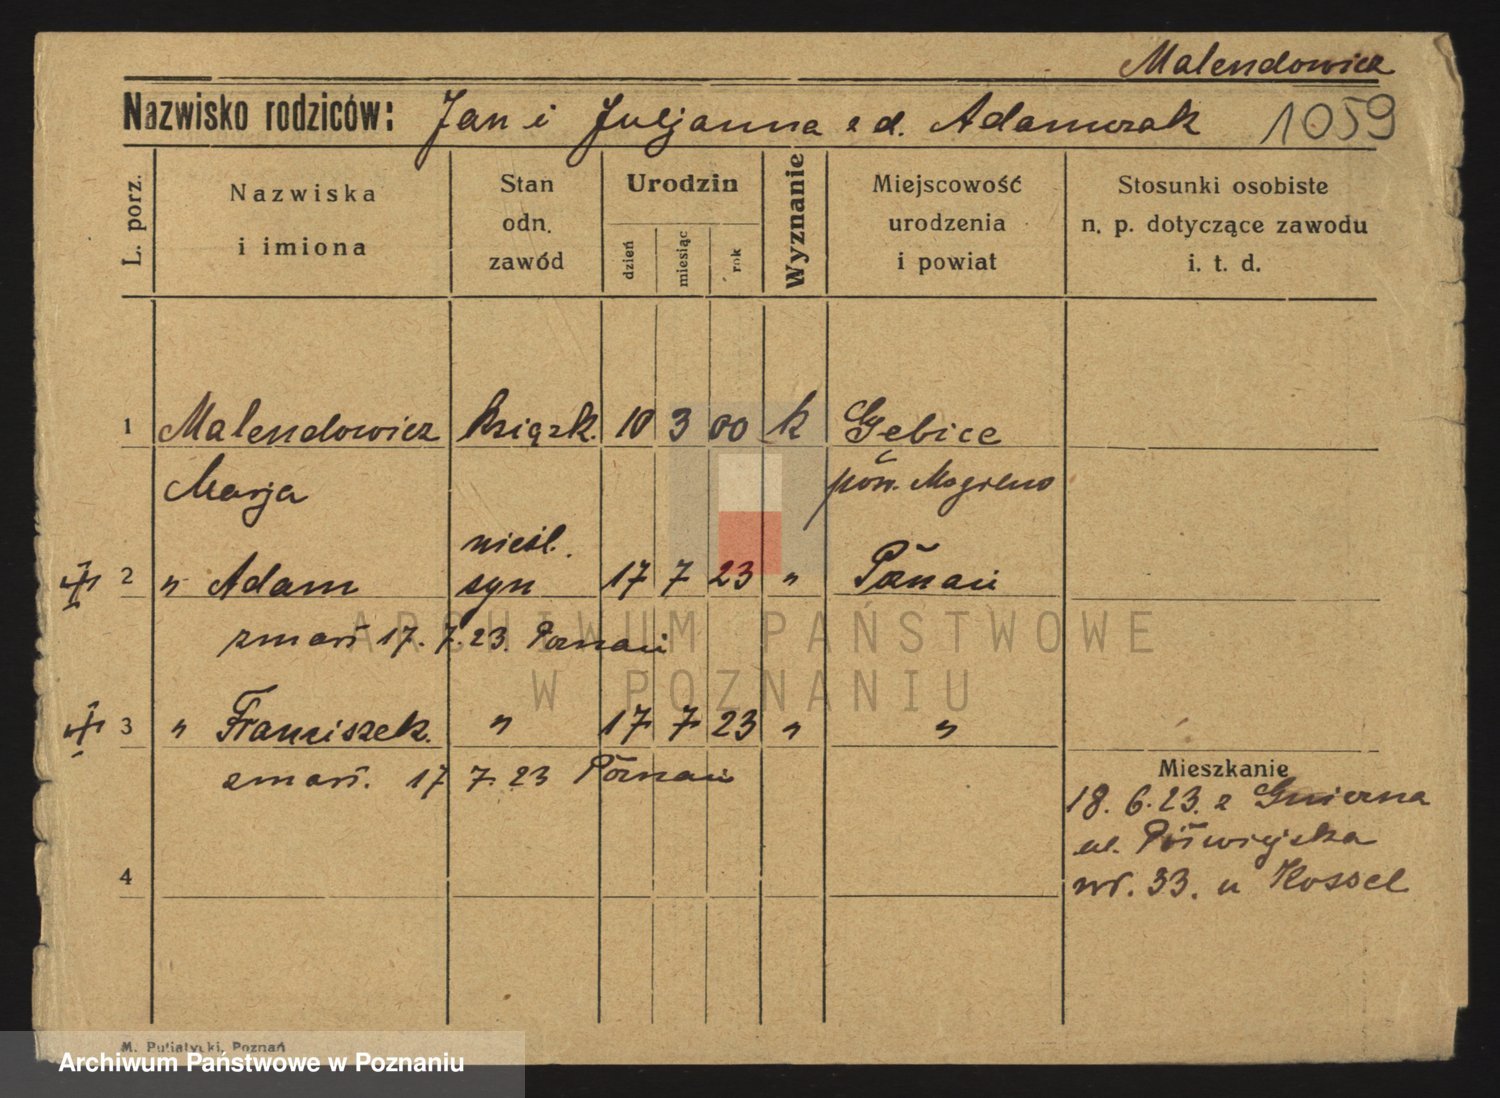 Malendowicz
Nazwisko rodziców: Jan i Juljanna z d. Adamczak 1059
L. porz. Nazwiska i imiona Stan odn. zawód Urodzin dzień miesiąc rok Wyznanie Miejscowość urodzenia i powiat Stosunki osobiste n. p. dotyczące zawodu i. t. d.
1 Malendowicz książk. 10 3 00 k Gębice
Marja pow. Mogilno
nieśl.
2 " Adam syn 17 7 23 " Poznań
zmarł 17. 7. 23. Poznań
3 " Franciszek. " 17 7 23 " "
zmarł. 17 7. 23 Poznań
Mieszkanie
18. 6. 23. z
ul. Półwiejska
4
nr. 33. u Kossel
M. Putiatycki, Poznań
ARCHIWUM PAŃSTWOWE
W POZNANIU
Archiwum Państwowe w Poznaniu